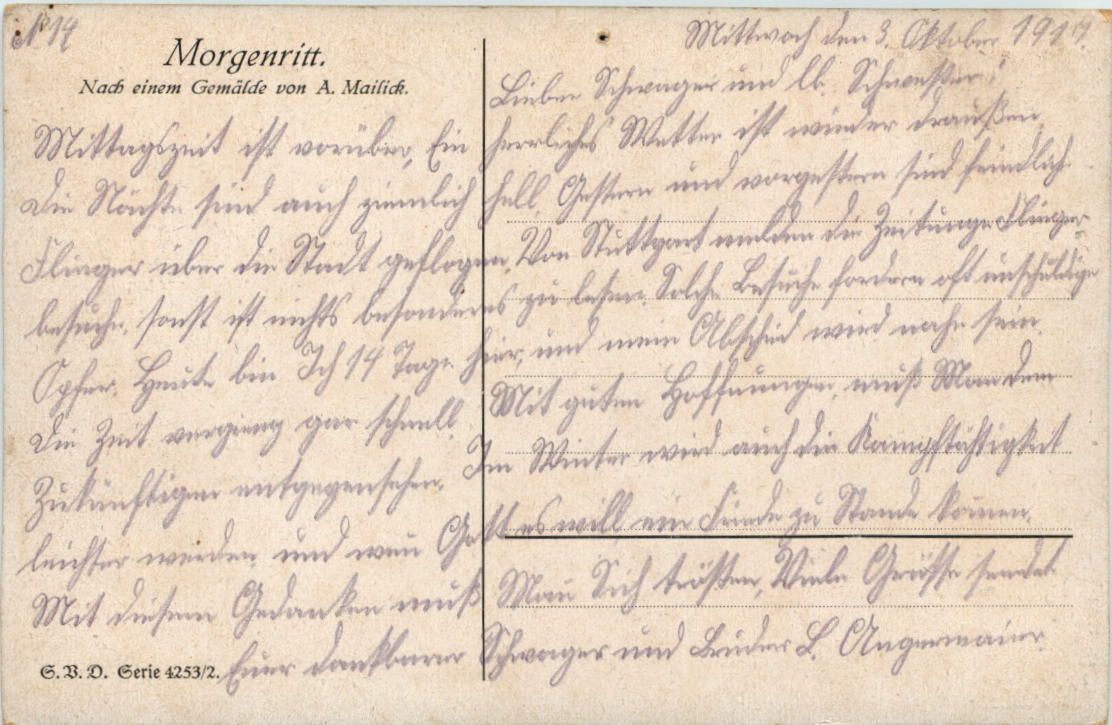 No 14
Mittwoch den 3. Oktober 1917.
Morgenritt.
Nach einem Gemälde von A. Mailick.
Lieber Schwager und lb. Schwester!
Mittagszeit ist vorüber, Ein herrliches Wetter ist wieder draußen,
die Nächte sind auch ziemlich hell, Gestern und vorgestern sind feindlich.
Flieger über die Stadt geflogen, Von Stuttgart melden die Zeitunge Flieger-
besuche, sonst ist nichts besonderes zu lesen. Solche Besuche fordern oft unschuldige
Opfer. Heute bin Ich 14 Tage hier, und mein Abschied wird nahe sein.
Die Zeit vergieng gar schnell, Mit guten Hoffnungen, muß Man dem
Zukünftigen entgegensehen. Im Winter wird auch die Kampftähtigkeit
leichter werden und wen Gott es will ein Friede zu Stande komen.
Mit diesem Gedanken muß Man Sich trösten, Viele Grüsse sendet
Euer dankbarer Schwager und Bruder L. Angermaier.
S. V. D. Serie 4253/2.